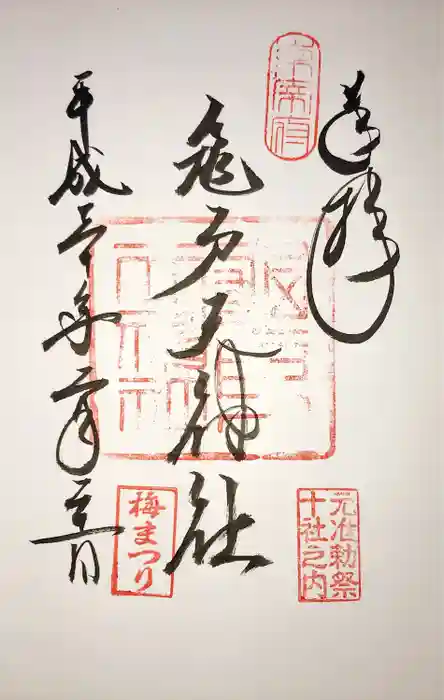 奉拝
亀戸天神社
平成三十年二月
梅まつり
元准勅祭
十社之内